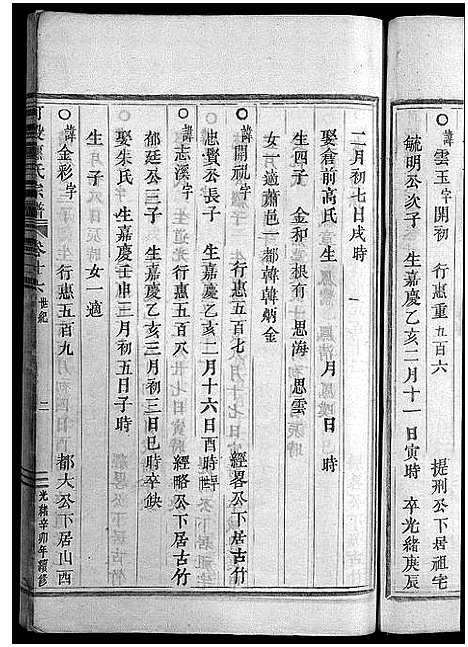 諱雲玉字開初 行惠重九百六 提刑公下居祖宅
毓明公次子 生嘉慶乙亥二月十一日寅時 卒光緒庚辰
二月初七日戌時
娶倉前高氏 生 月 日 時
生四子 金和 根有 思海 思雲
女一適蕭邑一都韓韓炳金
諱開祉字 行惠五百七 經畧公下居古竹
忠賢公長子 生嘉慶乙亥二月十六日酉時
諱志溪字 行惠五百八 經略公下居古竹
郁廷公三子 生嘉慶乙亥三月初三日巳時卒缺
娶朱氏 生嘉慶壬申三月初五日子時
生一子 女一適
諱金彩字 行惠五百九 都大公下居山西
氏宗譜 卷十六 世紀 二 光緒辛卯年續修